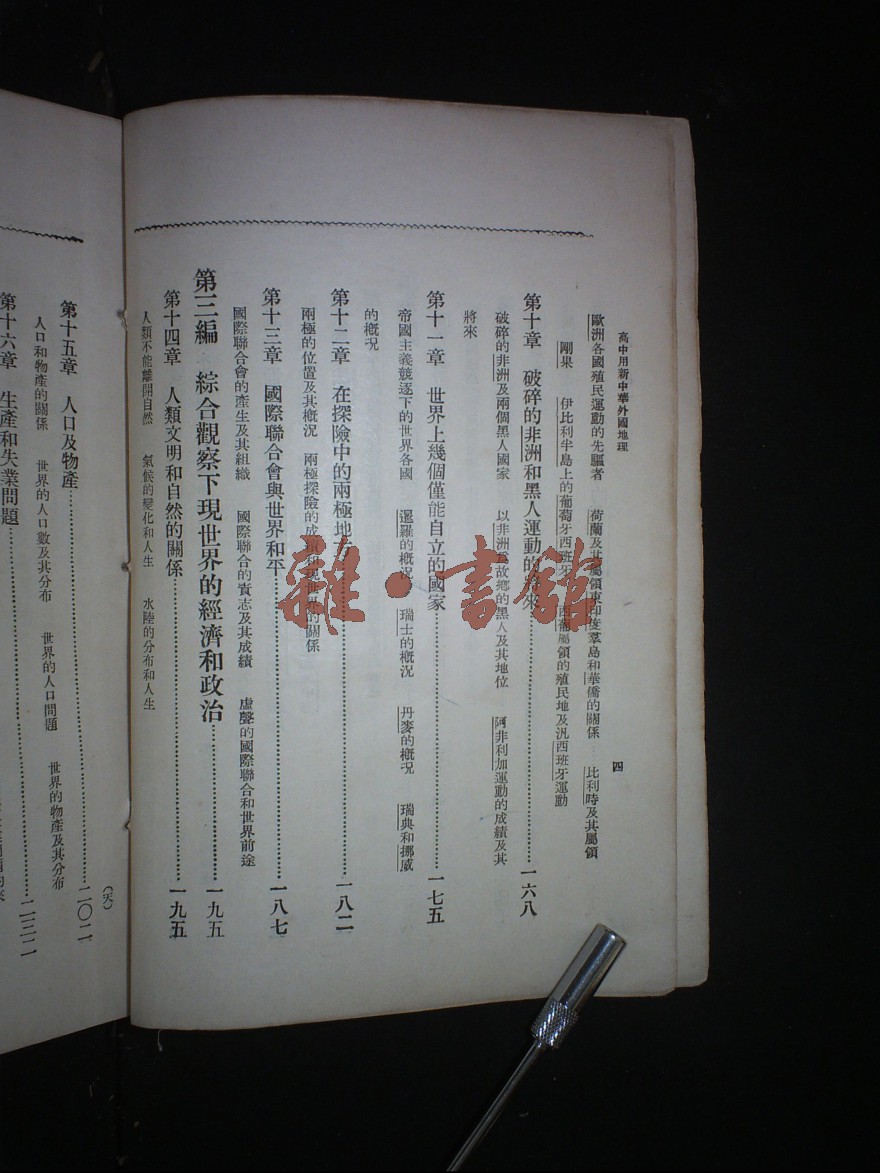 高中用新中華外國地理
四
歐洲各國殖民運動的先驅者　荷蘭及其屬領東印度羣島和華僑的關係　比利時及其屬領
剛果　伊比利半島上的葡萄牙西班牙　西葡屬領的殖民地及汎西班牙運動
第十章　破碎的非洲和黑人運動的將來…一六八
破碎的非洲及兩個黑人國家　以非洲爲故鄉的黑人及其地位　阿非利加運動的成績及其
將來
第十一章　世界上幾個僅能自立的國家…一七五
帝國主義競逐下的世界各國　暹羅的槪況　瑞士的槪況　丹麥的槪況　瑞典和挪威
的槪況
第十二章　在探險中的兩極地方…一八二
兩極的位置及其槪況　兩極探險的成績和現世界的關係
第十三章　國際聯合會與世界和平…一八七
國際聯合會的產生及其組織　國際聯合的實志及其成績　虛聲的國際聯合和世界前途
第三編　綜合觀察下現世界的經濟和政治…一九五
第十四章　人類文明和自然的關係…一九五
人類不能離開自然　氣候的變化和人生　水陸的分布和人生
(天)
第十五章　人口及物產…二〇二
人口和物產的關係　世界的人口數及其分布　世界的人口問題　世界的物產及其分布
第十六章　生產和失業問題…二三二
雜·書館